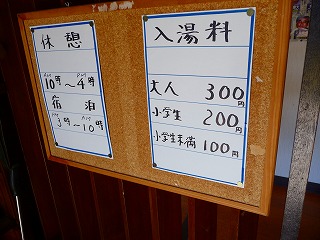 休憩
AM PM
10時～4時
宿泊
PM AM
3時～10時
入湯料
大人 300円
小学生 200円
小学生未満 100円